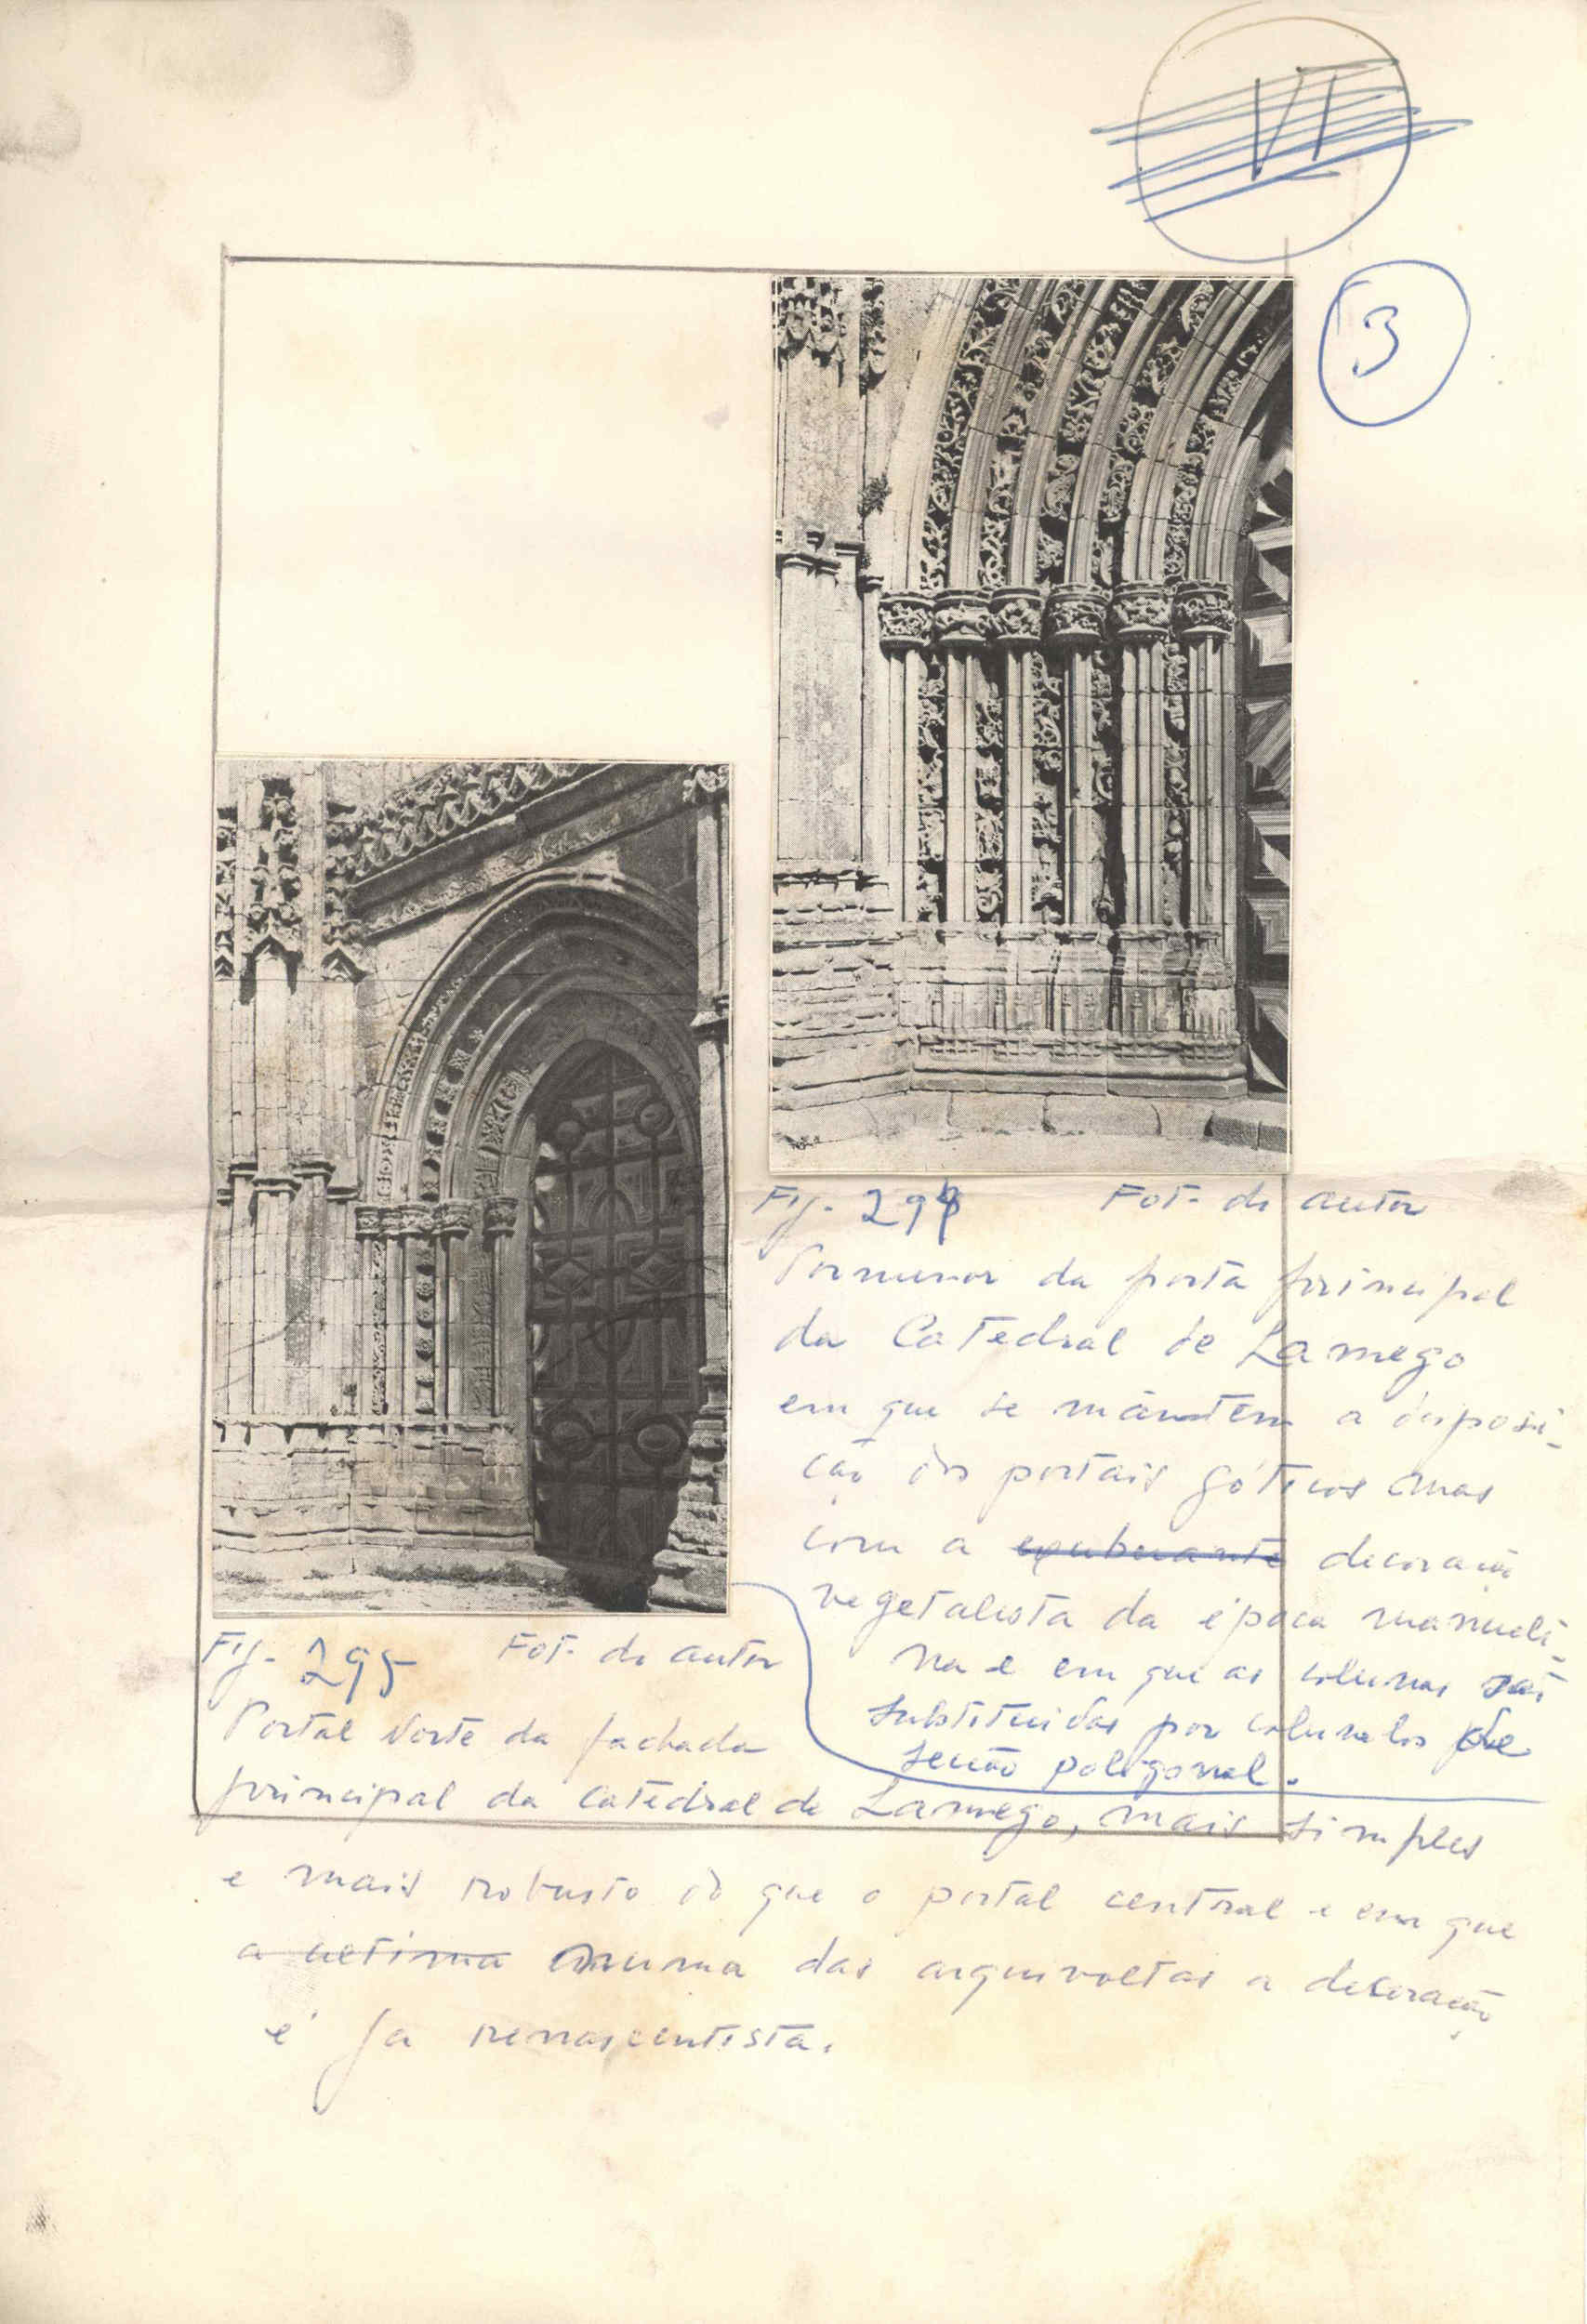 VI
3
Fig. 294 Fot. do autor
Pormenor da porta principal
da Catedral de Lamego
em que se mantem a disposi-
ção dos portais góticos mas
com a exuberante decoração
vegetalista da época manueli-
na e em que as colunas são
substituidas por colunelos de
secção poligonal.
Fig. 295 Fot. do autor
Portal Norte da fachada
principal da Catedral de Lamego, mais simples
e mais robusto do que o portal central e em que
a ultima numa das arquivoltas a decoração
é ja renascentista.